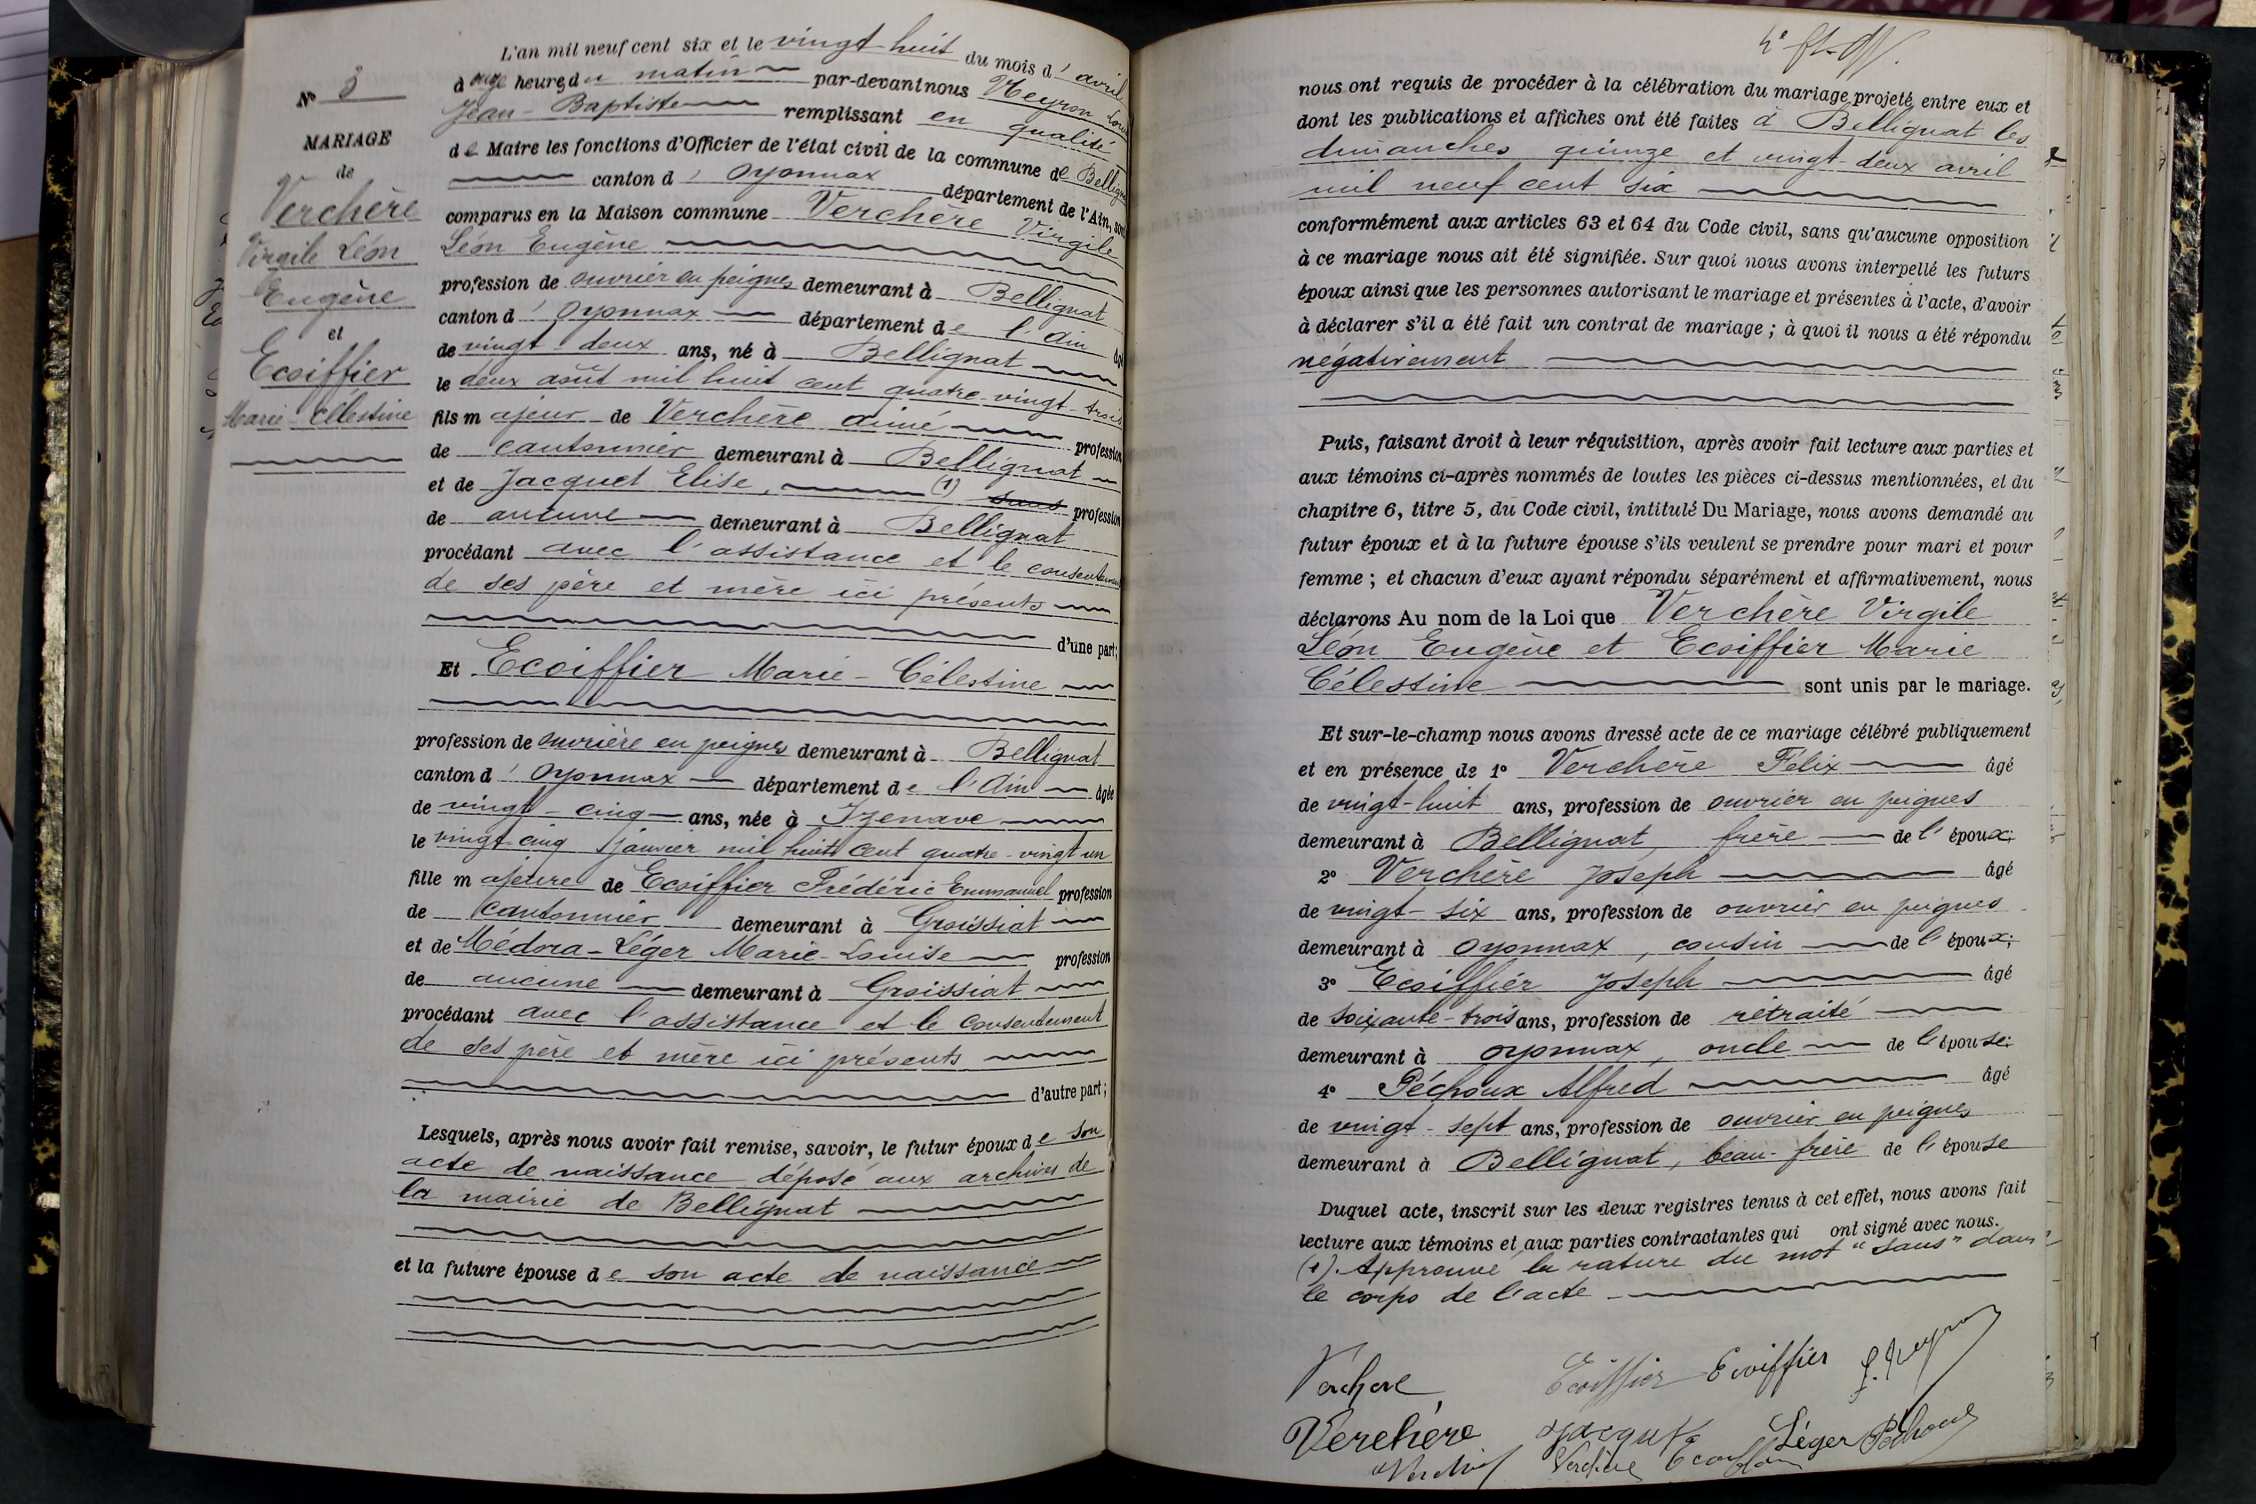 N° 3
MARIAGE
de
Verchère
Virgile Léon
Eugène
et
Ecoiffier
Marie-Célestine
L'an mil neuf cent six et le vingt-huit du mois d'avril
d onze heures du matin par-devant nous Meyron
Jean-Baptiste remplissant en qualité
de Maire les fonctions d'Officier de l'état civil de la commune de Bellignat
canton d'Oyonnax département de l'Ain, sont
comparus en la Maison commune Verchère Virgile
Léon Eugène
profession de ouvrier en peignes demeurant à Bellignat
canton d'Oyonnax département de l'Ain âgé
de vingt-deux ans, né à Bellignat
le deux août mil huit cent quatre-vingt-trois
fils majeur de Verchère Aimé profession
de cantonnier demeurant à Bellignat
et de Jacquet Elise, (1) sans profession
de aucune demeurant à Bellignat
procédant avec l'assistance et le consentement
de ses père et mère ici présents
d'une part;
Et Ecoiffier Marie-Célestine
profession de ouvrière en peignes demeurant à Bellignat
canton d'Oyonnax département de l'Ain âgée
de vingt-cinq ans, née à Izenave
le vingt-cinq janvier mil huit cent quatre-vingt un
fille majeure de Ecoiffier Frédéric Emmanuel profession
de cantonnier demeurant à Groissiat
et de Médora-Léger Marie-Louise profession
de aucune demeurant à Groissiat
procédant avec l'assistance et le consentement
de ses père et mère ici présents
d'autre part;
Lesquels, après nous avoir fait remise, savoir, le futur époux de son
acte de naissance déposé aux archives de
la mairie de Bellignat
et la future épouse de son acte de naissance
nous ont requis de procéder à la célébration du mariage projeté entre eux et
dont les publications et affiches ont été faites à Bellignat les
dimanches quinze et vingt-deux avril
mil neuf cent six
conformément aux articles 63 et 64 du Code civil, sans qu'aucune opposition
à ce mariage nous ait été signifiée. Sur quoi nous avons interpellé les futurs
époux ainsi que les personnes autorisant le mariage et présentes à l'acte, d'avoir
à déclarer s'il a été fait un contrat de mariage ; à quoi il nous a été répondu
négativement
Puis, faisant droit à leur réquisition, après avoir fait lecture aux parties et
aux témoins ci-après nommés de toutes les pièces ci-dessus mentionnées, et du
chapitre 6, titre 5, du Code civil, intitulé Du Mariage, nous avons demandé au
futur époux et à la future épouse s'ils veulent se prendre pour mari et pour
femme ; et chacun d'eux ayant répondu séparément et affirmativement, nous
déclarons Au nom de la Loi que Verchère Virgile
Léon Eugène et Ecoiffier Marie
Célestine sont unis par le mariage.
Et sur-le-champ nous avons dressé acte de ce mariage célébré publiquement
et en présence de 1° Verchère Félix âgé
de vingt-huit ans, profession de ouvrier en peignes
demeurant à Bellignat, frère de l'époux;
2° Verchère Joseph âgé
de vingt-six ans, profession de ouvrier en peignes
demeurant à Oyonnax, cousin de l'époux;
3° Ecoiffier Joseph âgé
de soixante-trois ans, profession de retraité
demeurant à Oyonnax, oncle de l'épouse;
4° Péchoux Alfred âgé
de vingt-sept ans, profession de ouvrier en peignes
demeurant à Bellignat, beau-frère de l'épouse
Duquel acte, inscrit sur les deux registres tenus à cet effet, nous avons fait
lecture aux témoins et aux parties contractantes qui ont signé avec nous.
(1) Approuvé la rature du mot "sans" dans
le corps de l'acte
Verchere Ecoiffier Ecoiffier
Verchère Jacquet Léger Péchoux
Verchère